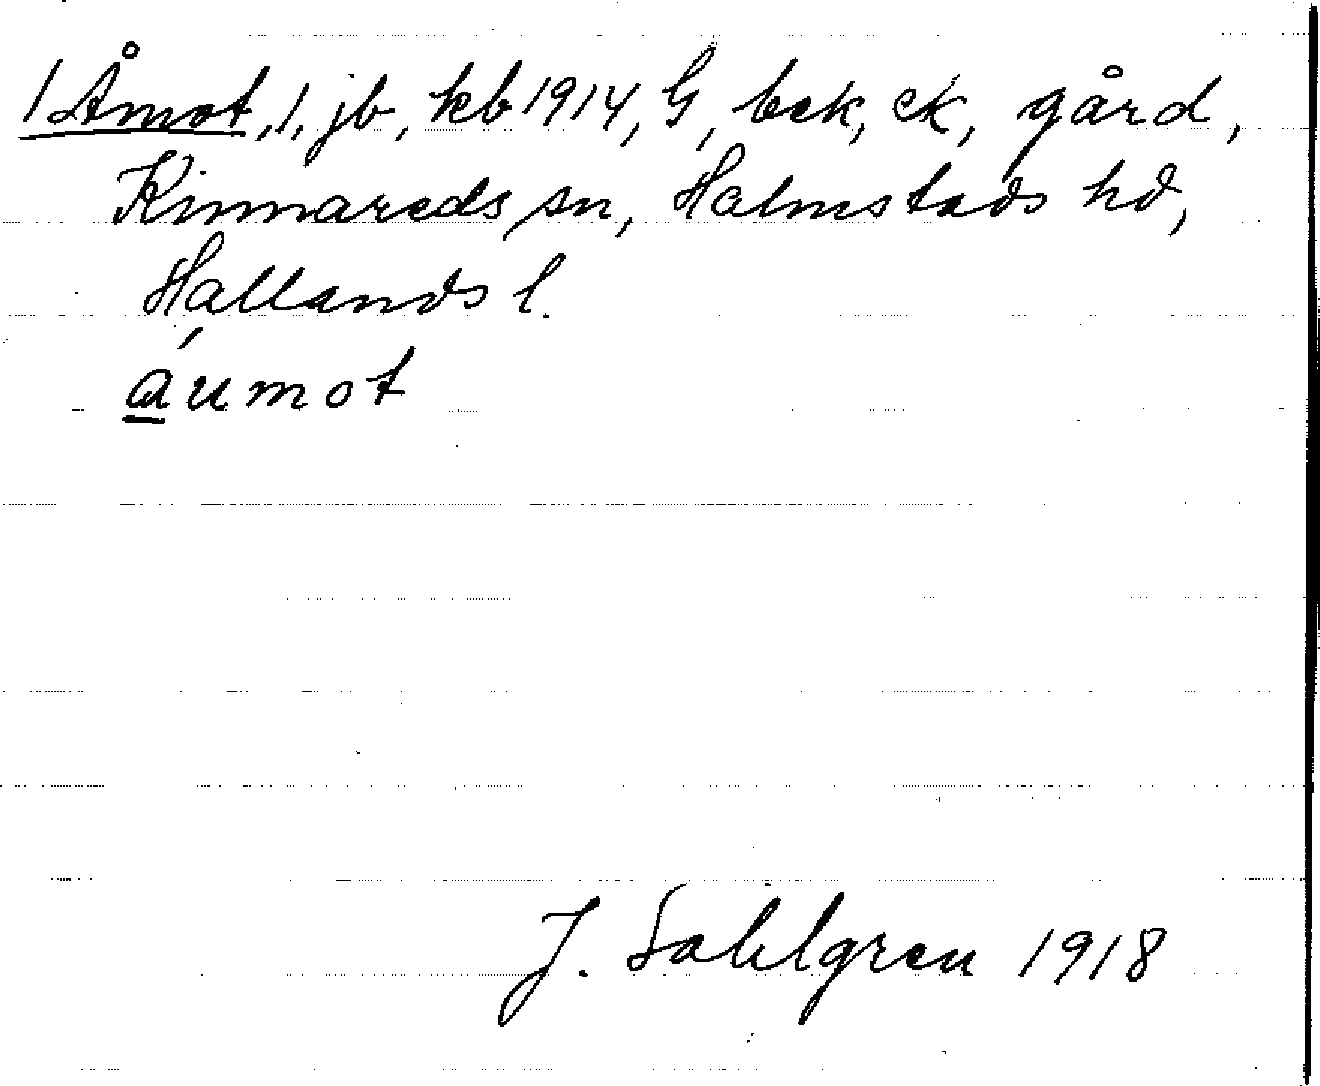 1 Åmot, 1, jb, kb 1914, G, bek, ek, gård,
Kinnareds sn, Halmstads hd,
Hallands l.
áumot
J. Sahlgren 1918